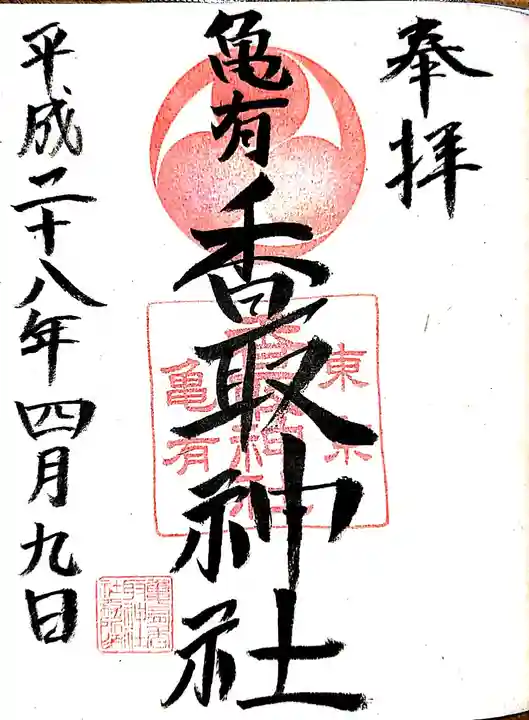 奉拝
亀有香取神社
東京
香取神社
亀有
平成二十八年四月九日